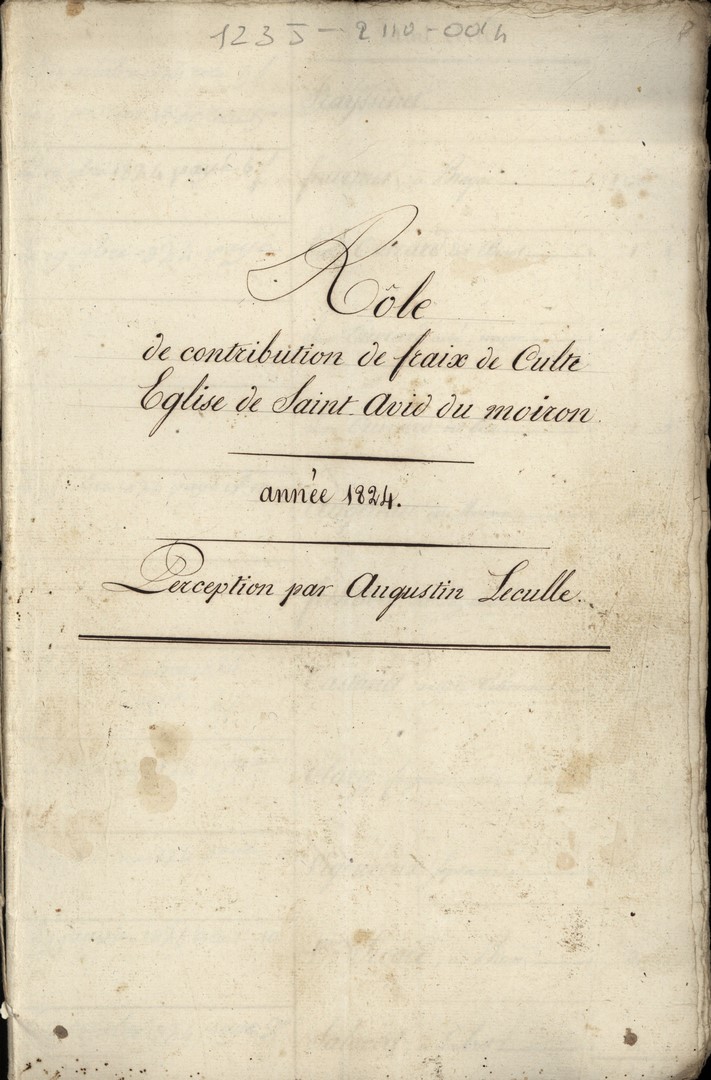 123 J - 2 110 - 004
Rôle
de contribution de fraix de Culte
Eglise de Saint Avid du moiron.
année 1824.
Perception par Augustin Leculle.